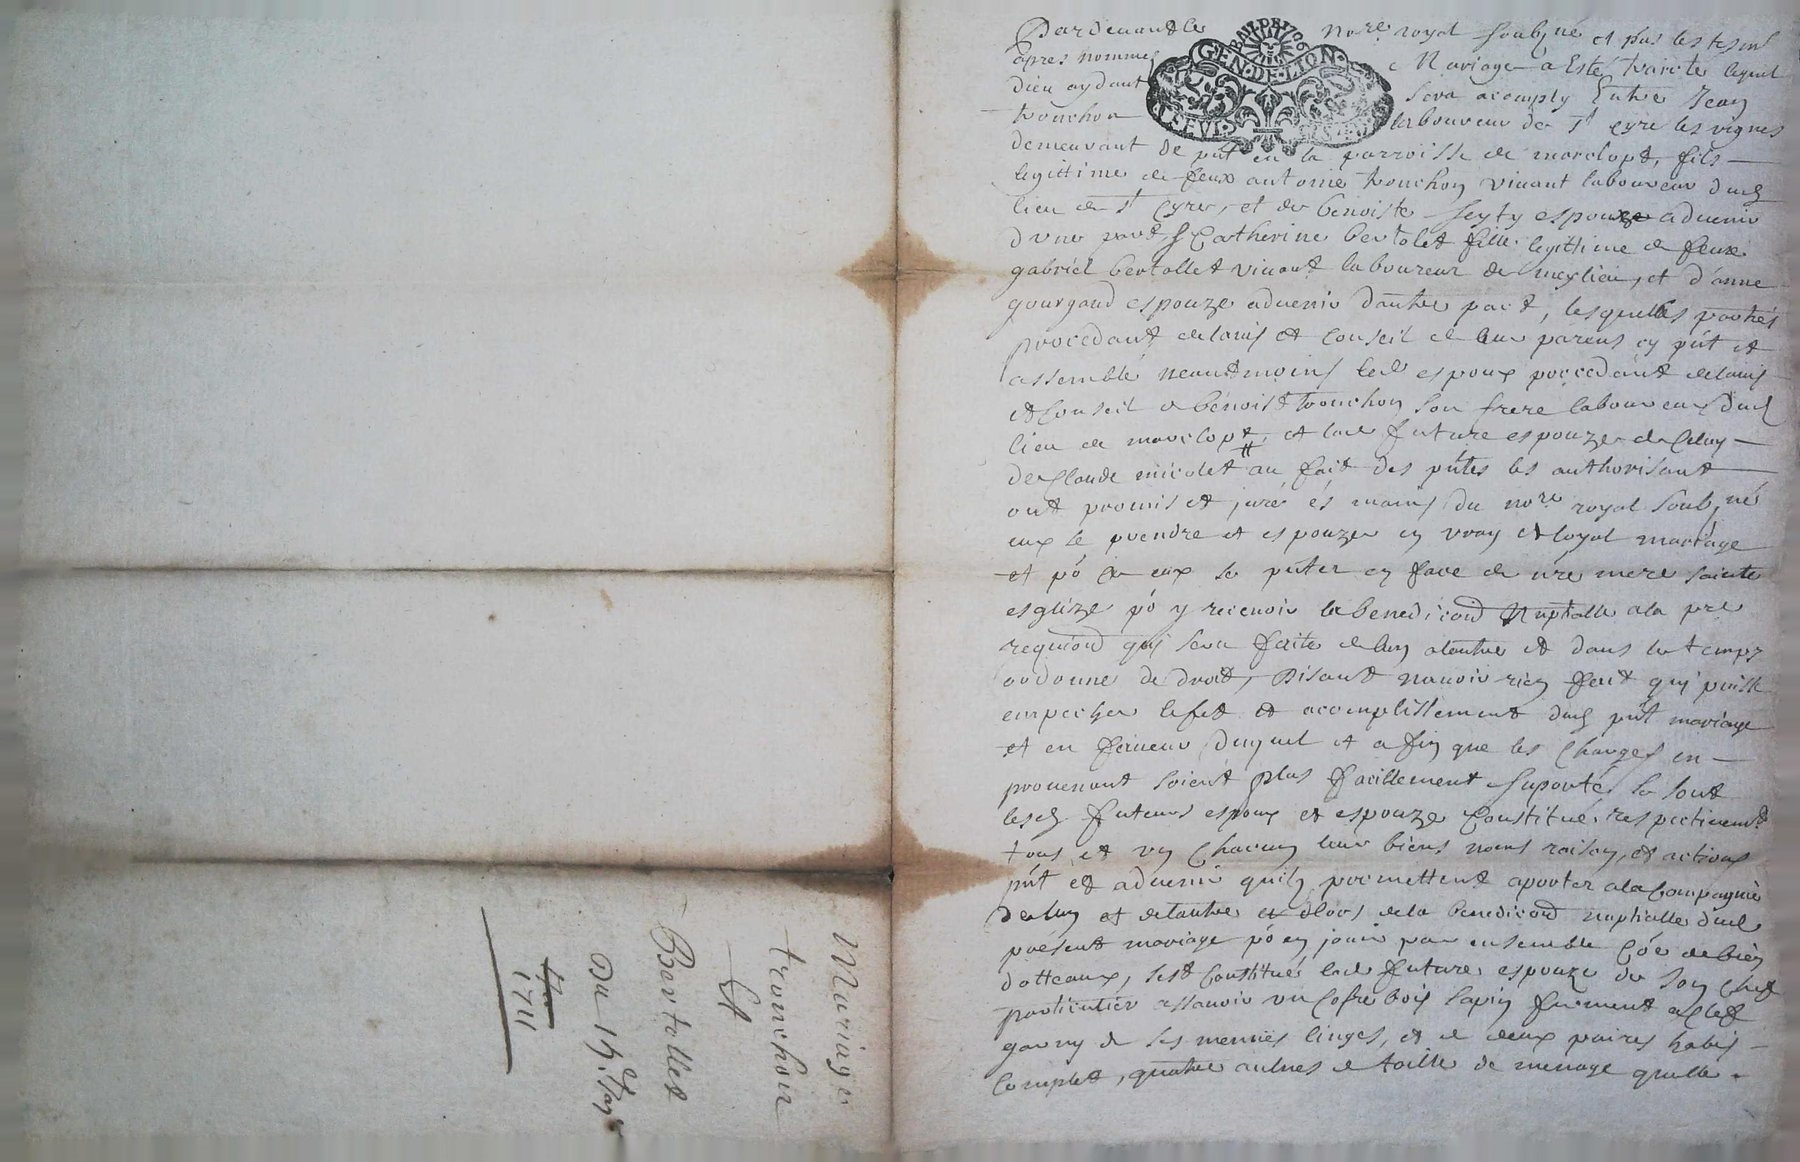 Pardeuant le nore royal soubzné et pns les tesm
apres nommes Mariage a Esté traicte lequel
dieu aydant sera acomply Entre Jean
tronchon laboureur de St Cyre les vignes
demeurant de pnt en la parroisse de marclopt, fils
legittime de feux antoine tronchon viuant laboureur dud
lieu de St Cyre, et de benoiste espoux aduenir
dvne part, & Catherine bertolet fille legittime de feux
gabriel bertollet viuant laboureur de meylieu, et d'anne
gourgaud espouze aduenir dautre part, lesquelles parties
procedant de lauis et conseil de leur parens cy pnt et
assemblé neantmoins led espoux procedant de lauis
et conseil de benoist tronchon son frere laboureur dud
lieu de marclopt, et lad future espouze de celuy
de Claude nicolet au fait des pntes les authorisant
ont promis et juré és mains du nore royal soubzné
eux se prendre et espouzer en vray et loyal mariage
et po ce eux se pnter en face de nre mere sainte
esglize po y receuoir la benediciond Nuptialle a la pre
requiond quj sera faite de lun a lautre et dans le temps
ordonne de droit, Disant nauoir rien fait quj puisse
empecher lefet et accomplissement dud pnt mariage
et en faueur duquel et a fin que les charges en
prouenant soient plus facillement suporté se sont
lesd futeurs espoux et espouze Constitué respectiuemt
tous et vn chacun leur biens noms raison, et actions
pnt et aduenir quilz promettent aporter a la Compagnie
de lun et de lautre et dlors de la benediciond nuptialle dud
présent mariage po en jouir par ensemble coe de bien
dotteaux, sest constitué lad future espouze de son chef
particulier assauoir vn cofre bois sapin fermant a clef
garny de ses menües linges, et de deux paires habis
complet, quatre aulnes de toille de menage quelle
Mariage
tronchon
Et
Bertollet
Du 14e
1711
GEN·DE·LION